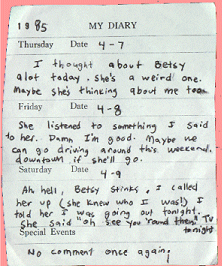 1985 MY DIARY
Thursday Date 4-7
I thought about Betsy
alot today. She's a weird one.
Maybe she's thinking about me too.
Friday Date 4-8
She listened to something I said
to her. Damn, I'm good. Maybe we
can go driving around this weecend.
downtown if she'll go.
Saturday Date 4-9
Ah hell, Betsy stinks. I called
her up (she knew who I was!) I
told her I was going out tonight.
She said "oh see you 'round then! TV
tonight
Special Events
No comment once again.